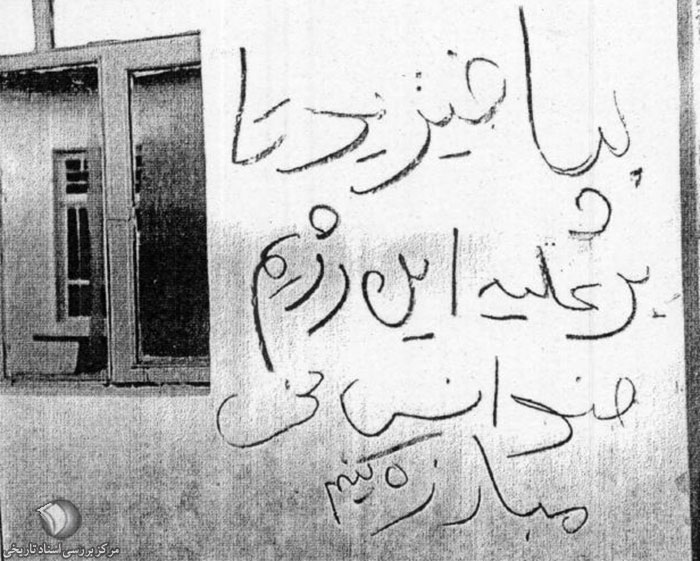 بپاخیزید تا
بر علیه این رژیم
ضد انسانی
مبارزه کنیم
مرکز بررسی اسناد تاریخی